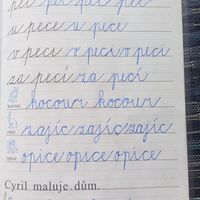 peč peč peč peč
u pece u pece
v peci v peci v peci
za pecí za pecí
kocour kocour
zajíc zajíc zajíc
opice opice opice
Cyril maluje dům.